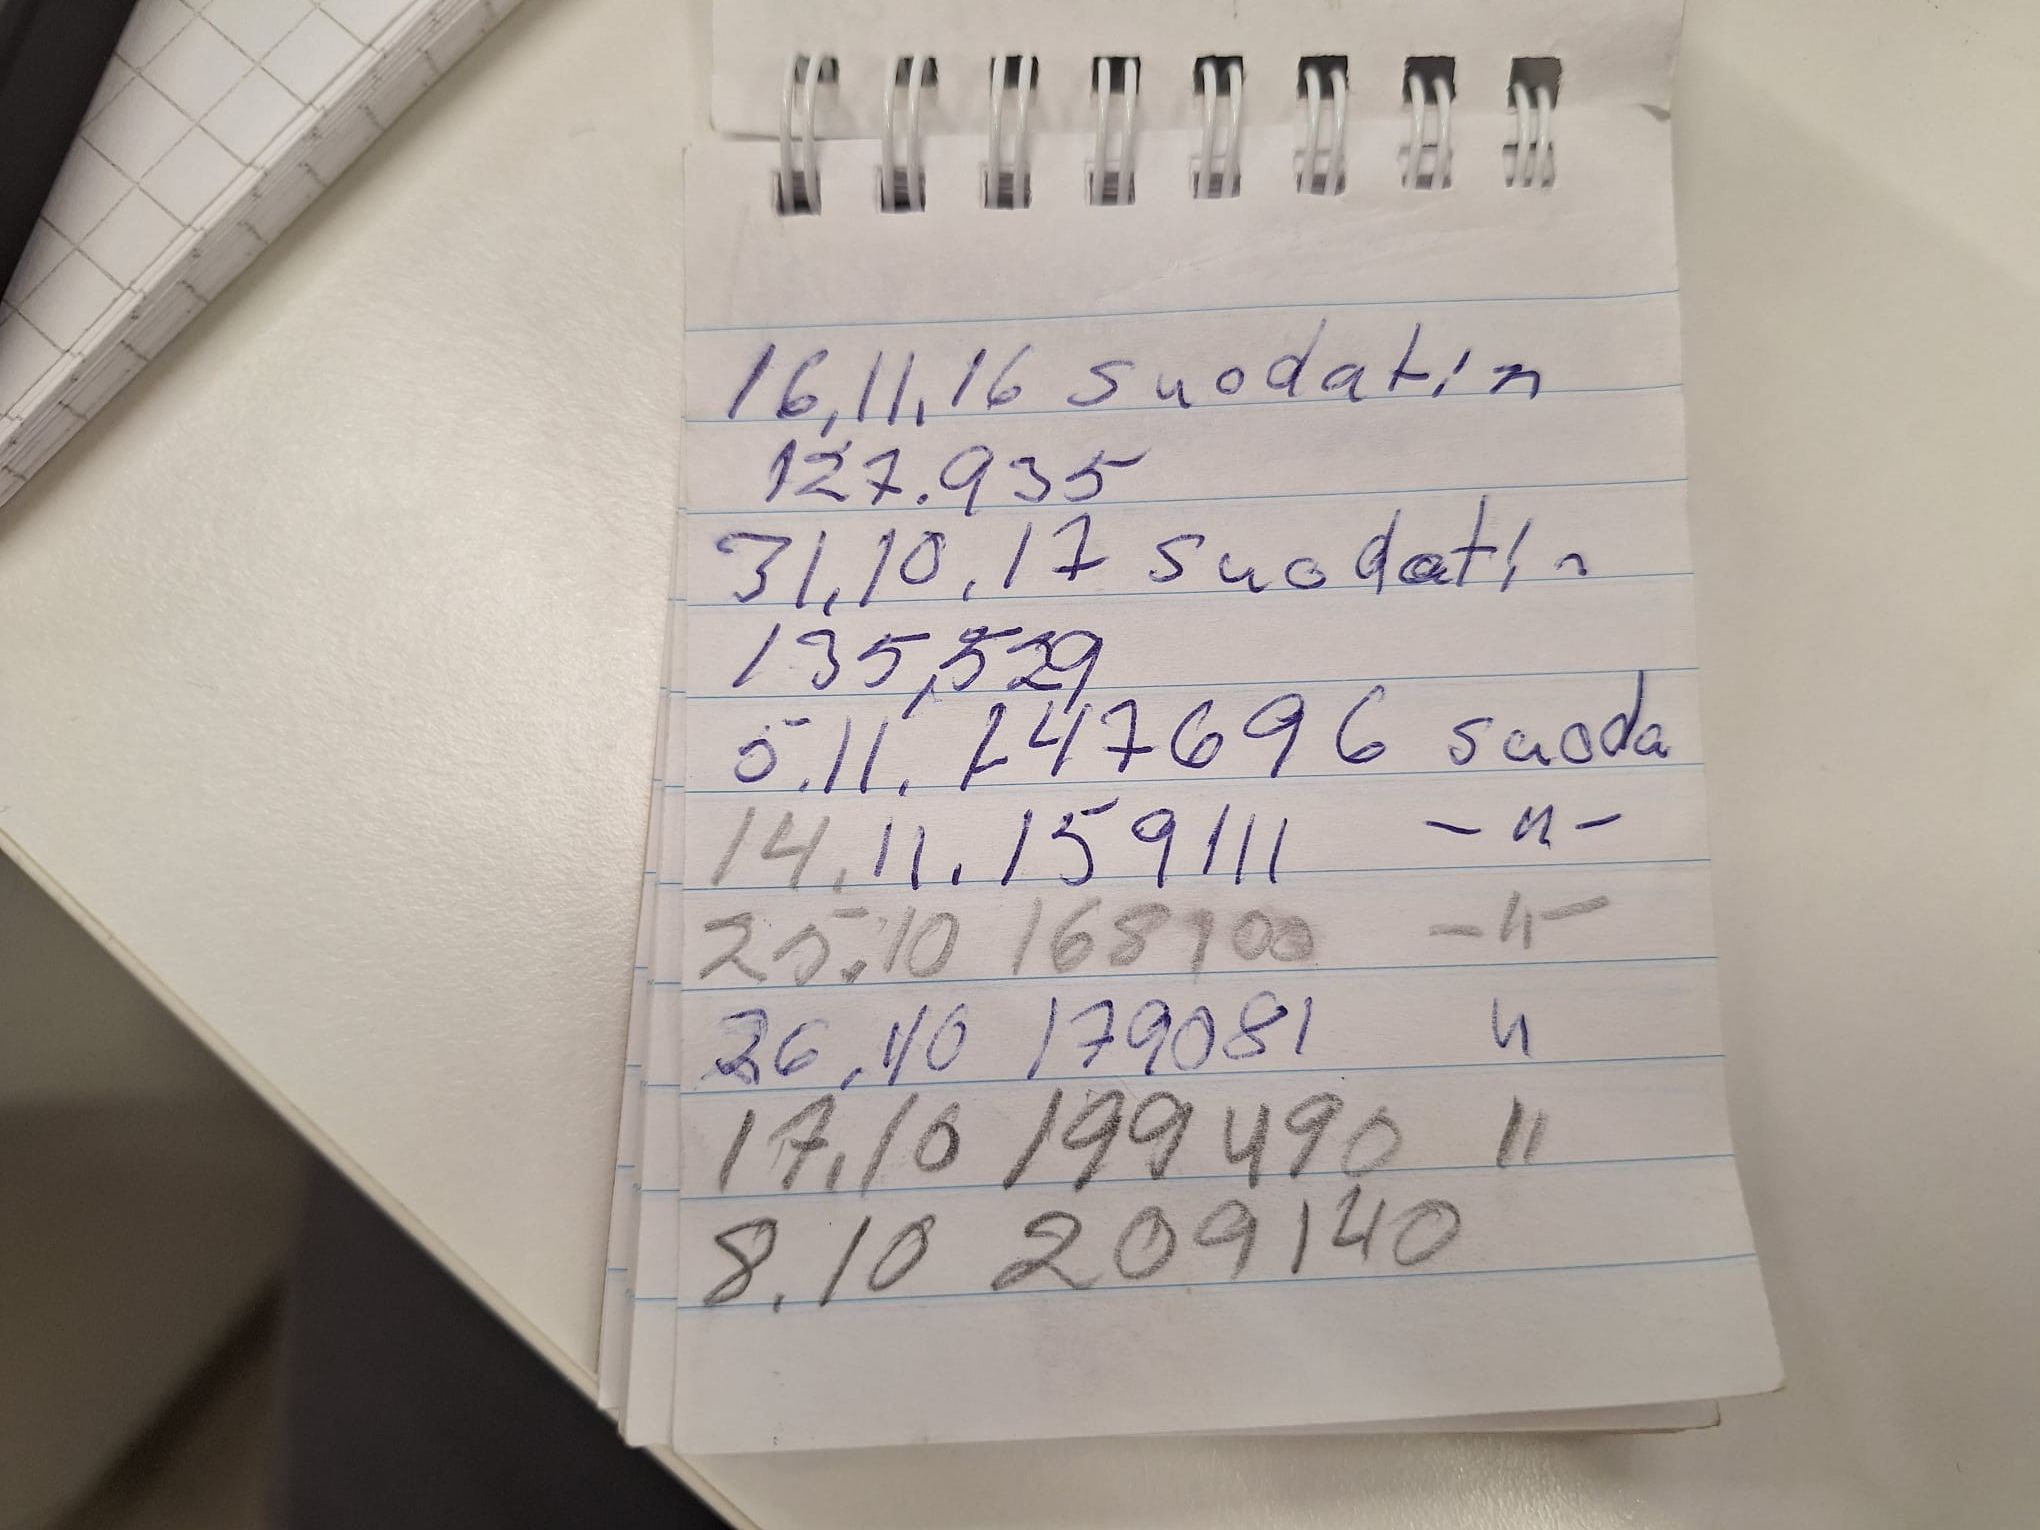 16,11,16 suodatin
127.935
31,10,17 suodatin
135,529
5.11. 147696 suoda
14.11. 159111 -"-
25.10 168900 -"-
26.10 179081 "
17.10 199490 "
8.10 209140